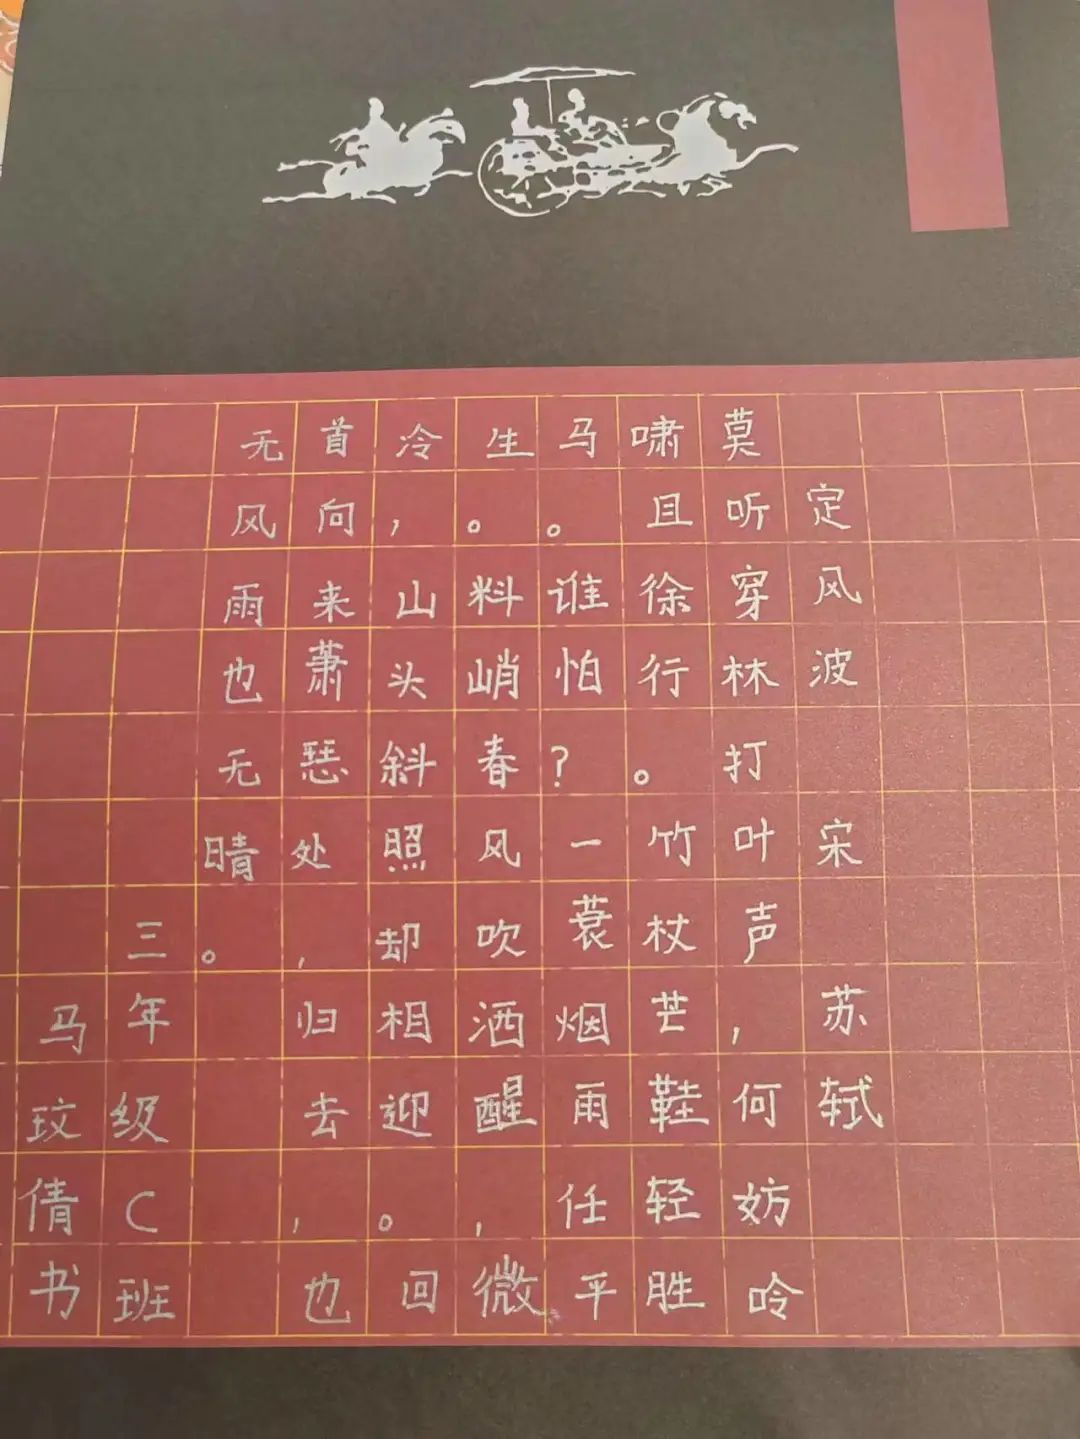 定风波 宋 苏轼
莫听穿林打叶声,何妨呤
啸且徐行。竹杖芒鞋轻胜
马。谁怕?一蓑烟雨任平
生。料峭春风吹洒醒,微
冷,山头斜照却相迎。回
首向来萧瑟处,归去,也
无风雨也无晴。
三年级C班
马玟倩书